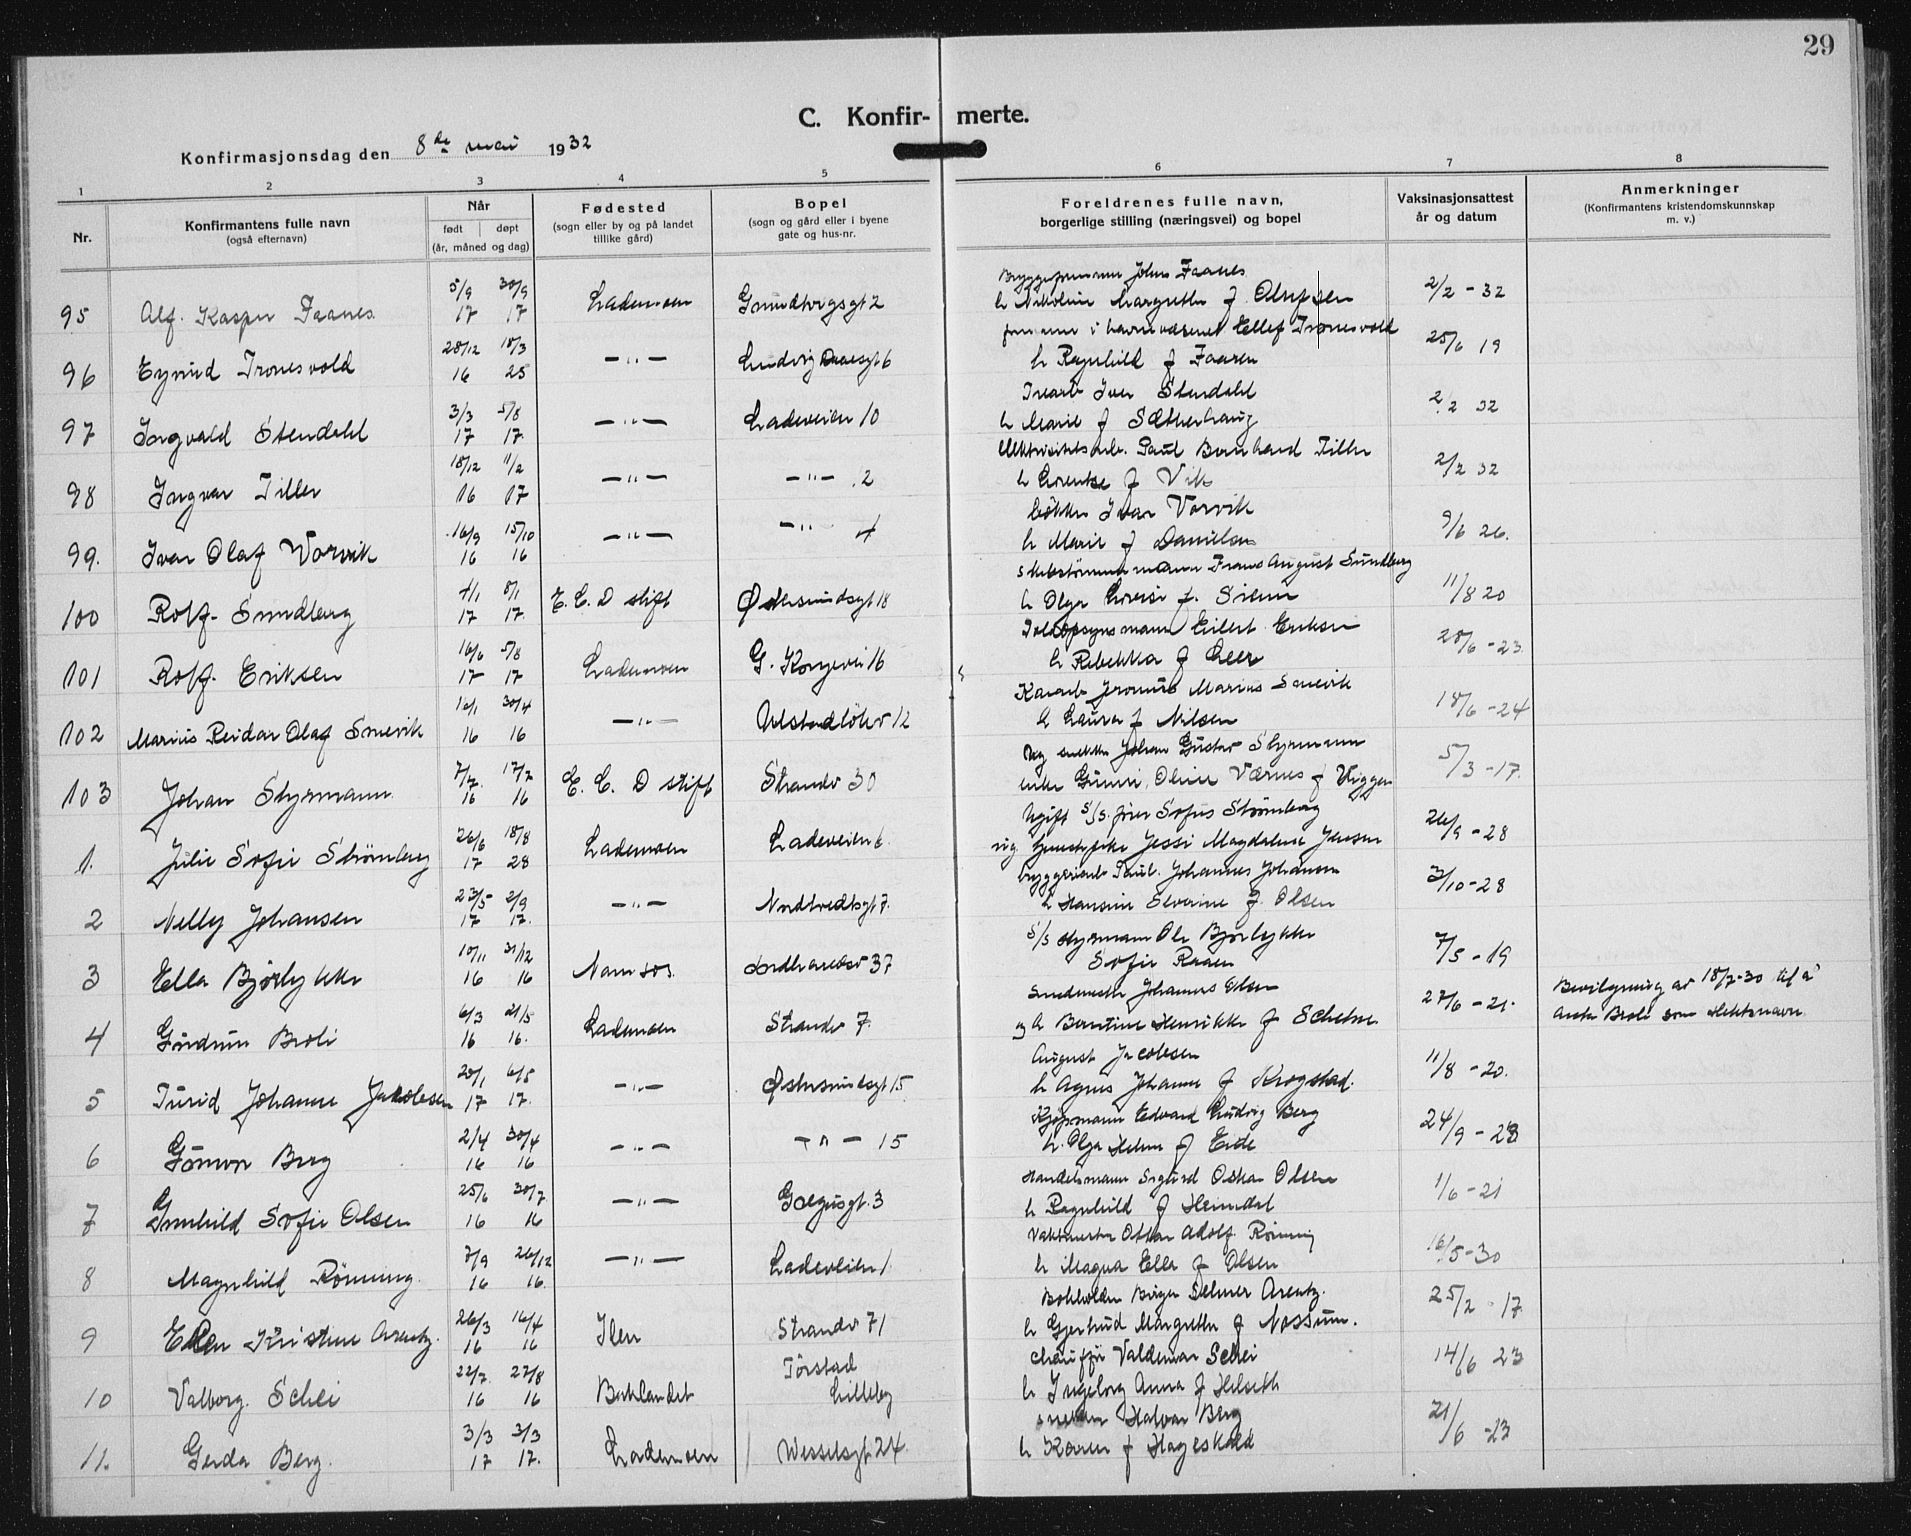 29
C. Konfir- merte.
Konfirmasjonsdag den 8de mai 1932
1 2 3 4 5 6 7 8
Nr.
Konfirmantens fulle navn
(også efternavn)
Når
født døpt
(år, måned og dag)
Fødested
(sogn eller by og på landet
tillike gård)
Bopel
(sogn og gård eller i byene
gate og hus-nr.
Foreldrenes fulle navn,
borgerlige stilling (næringsvei) og bopel
Vaksinasjonsattest
år og datum
Anmerkninger
(Konfirmantens kristendomskunnskap
m. v.)
5/9 30/9 Johan Faanes
95 Alf. Kasper Faanes 17 17 Lademoen Grundtvigsgt 2 h Nikoline Margrethe f. Olufsen 2/2 - 32
28/12 18/3 formann i havnevæsenet Ellef Tronesvold
96 Eyvind Tronesvold 16 25 — " — Ludvig Daaesgt 6 h Ragnhild f Faaren 25/6 19
3/3 5/8 Iver Stendahl
97 Ingvald Stendahl 17 17 — " — Ladeveien 10 h Marie f Sætherhaug 2/2 32
18/12 11/2 Elektrisitetsarb. Paul Bernhard Tiller
98 Ingvar Tiller 16 17 — " — — " — 2 h Lorentse f Vik 2/2 32
16/9 15/10 Bøkker Ivar Vorvik
99. Ivar Olaf Vorvik 16 16 — " — — " — 4 h Marie f Danielsen 9/6 26.
4/1 8/1 skibstømmermann Frans August Sundberg
100 Rolf Sundberg 17 17 E. C. D stift Østersundsgt 18 h Olga Lovise f. 11/8 20
16/6 5/8 Toldopsynsmann Eilert Eriksen
101 Rolf. Eriksen 17 17 Lademoen G. Kongevei 16 h Rebekka f Leer 28/6 - 23
16/1 30/4 Jeronius Marius Smevik
102 Marius Reidar Olaf Smevik 16 16 — " — 12 h Laura f Nilsen 18/6 - 24
7/7 17/7 snekker Johan Gustav Styrmann
103 Johan Styrmann 16 16 E. C. D stift Strandv 30 enke Gunni Oline Værnes f Vigger 5/3 - 17.
26/6 18/8 Ugift S/S. fører Sofus Strømberg
1. Julie Sofie Strømberg 17 28 Lademoen Ladeveien 6 og Jessi Magdalene Jensen 26/9 - 28
23/5 2/9 bryggeriarb Paul. Johannes Johansen
2 Nelly Johansen 17 17. — " — 7. h Hansine Severine f. Olsen 3/10 - 28
10/11 31/12 S/S styrmann Ole Bjørlykke
3 Ella Bjørlykke 16 16 Namsos 37 Sofie Raaen 7/5 - 19
6/3 21/5 smedmester Johannes Olsen Bevilgning av 18/7-30 til å
4 Gudrun Broli 16 16. Lademoen Strandv 7. og h Berntine Henrikke f Schetne 27/6 - 21. anta Broli som slektsnavn
20/1 6/5 August Jacobsen
5 Turid Johanne Jakobsen 17 17. — " — Østersundsgt 15 h Agnes Johanne f Krogstad. 11/8 - 20.
2/4 30/4 Kjøpmann Edvard Ludvig Berg
6 Gunvor Berg 16 16 — " — — " — 15 h. Olga Helene f Eide 24/9 - 28
25/6 30/7 Handelsmann Sigurd Oskar Olsen
7 Gunhild Sofie Olsen 16 16 — " — 3 h Ragnhild f Heimdal 1/6 - 21
7/9 26/12 Vaktmester Ottar Adolf Rønning
8 Magnhild Rønning. 16 16. — " — Ladeveien 1 h Magna Ella f Olsen 16/5 - 30
26/3 16/4 Bokholder Birger Selmer Arentz.
9 Ellen Kristine Arentz. 16 16 Ilen Strandv 71 h Gjertrud Margrethe f Nossum. 25/2 - 17
22/7 27/8 Torstad chauffør Valdemar Schei
10 Valborg. Schei 16 16 Baklandet Lilleby h Ingeborg Anna f Helseth 14/6 23
3/3 3/3 snekker Halvar Berg
11. Gerda Berg. 17 17. Lademoen Wesselsgt 24. h Karen f Hageskald 21/6 - 23